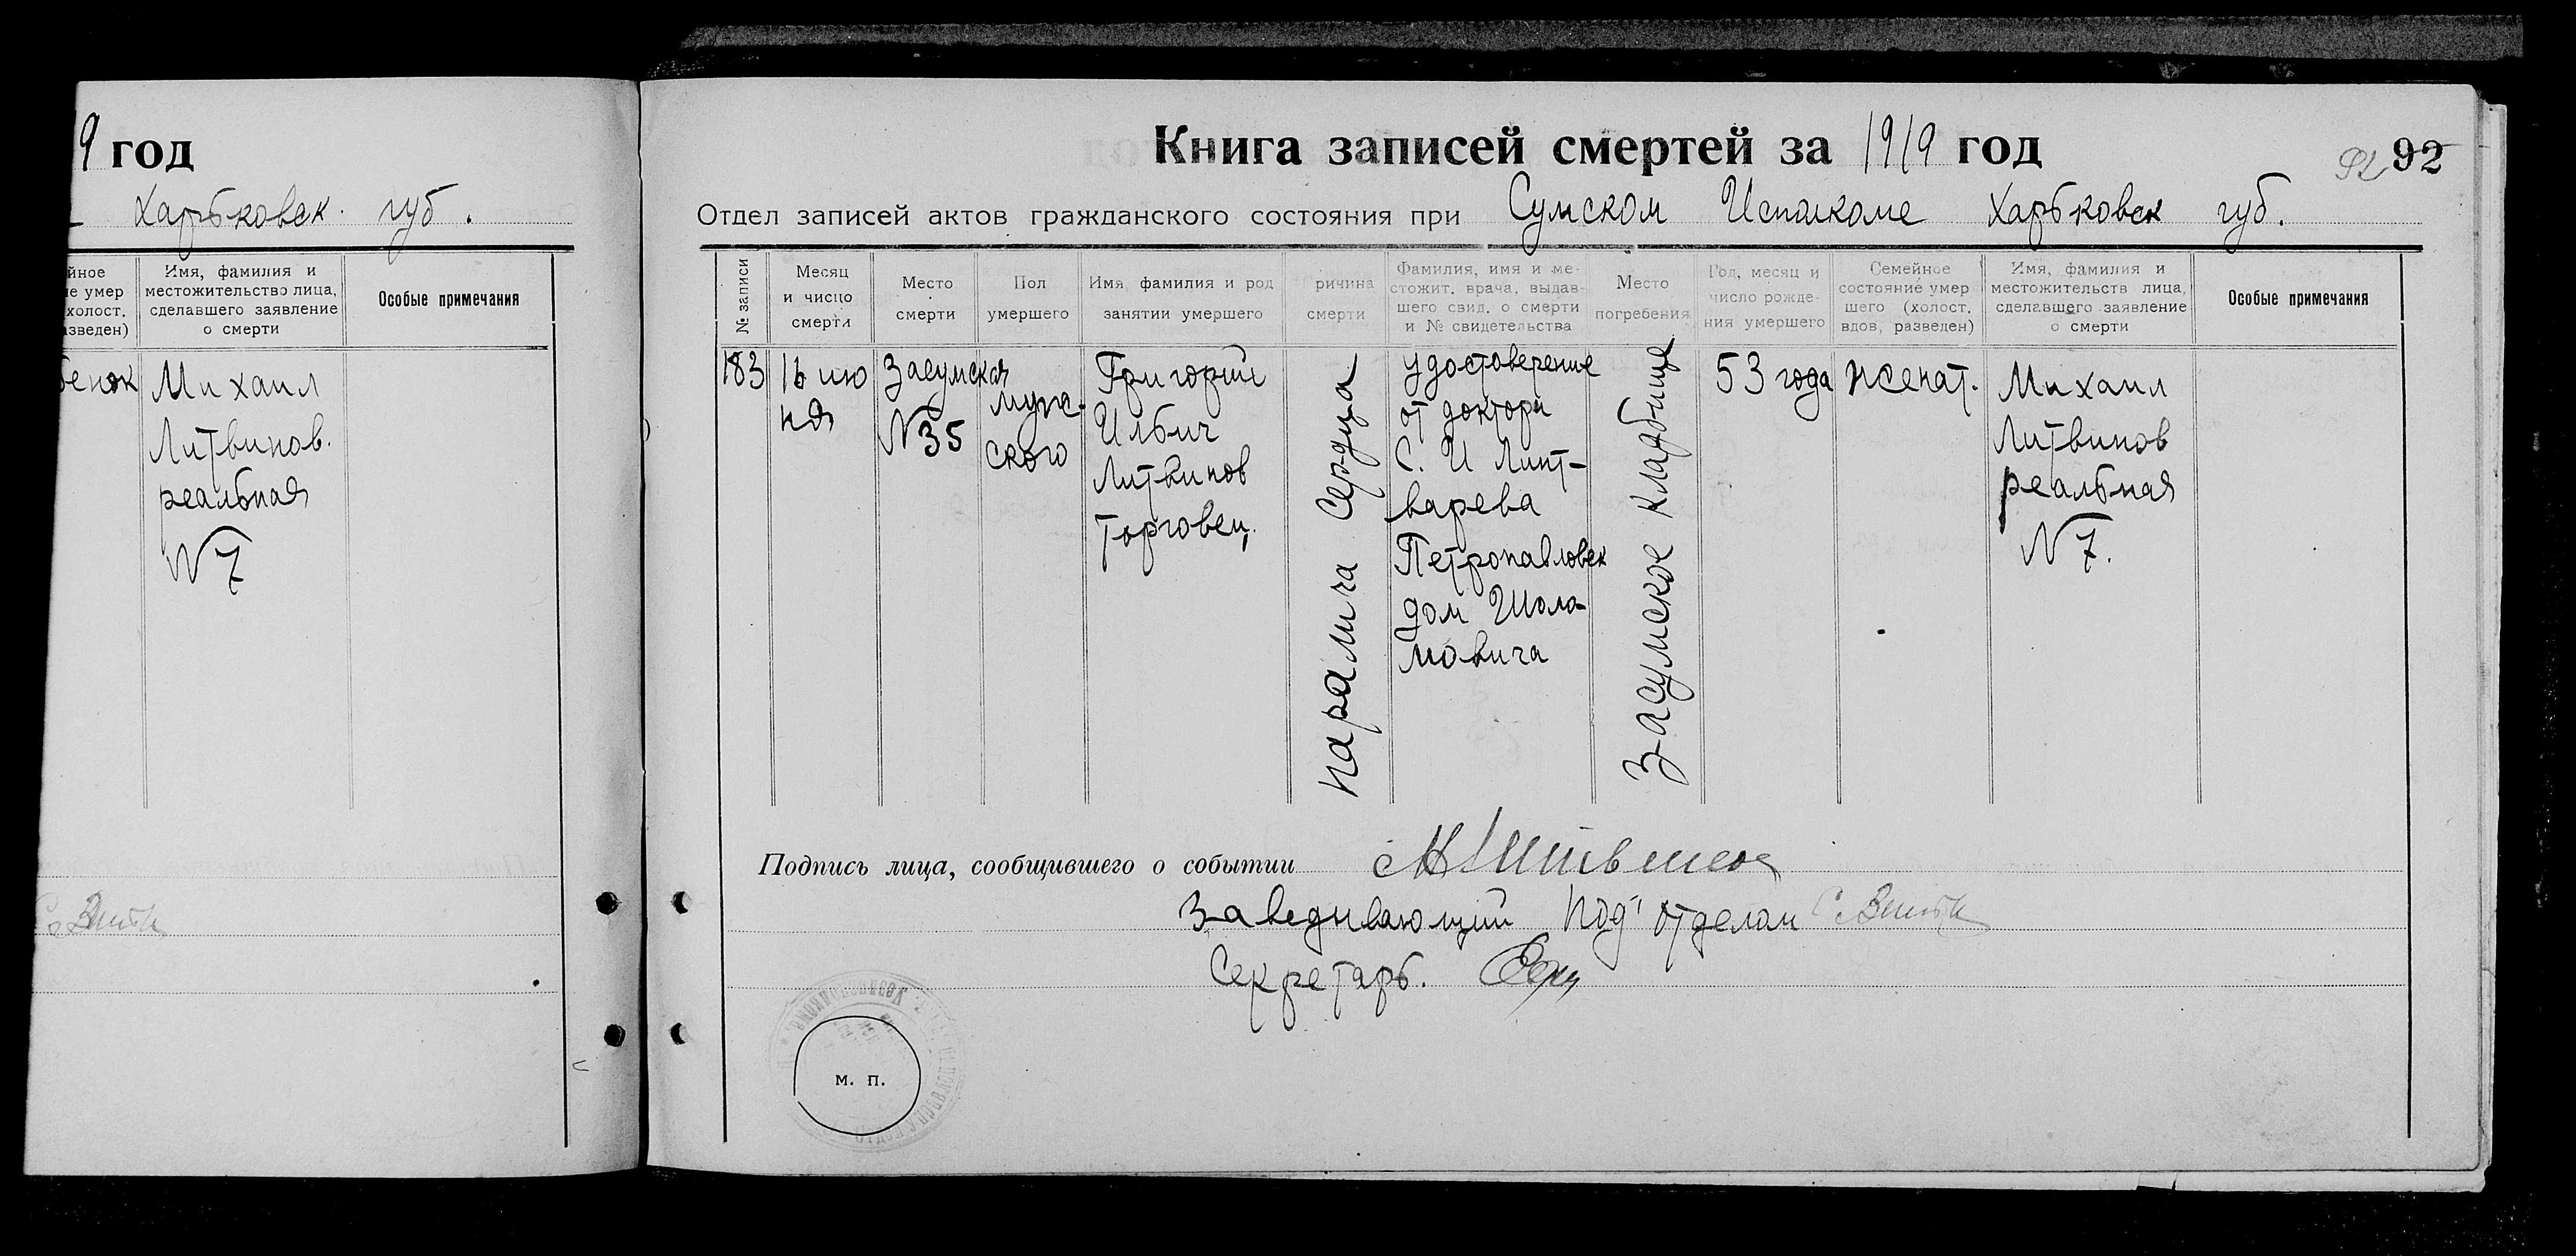 9 год
Харьковск. губ.
йное
е умер
холост.
азведен)
Имя, фамилия и
местожительство лица,
сделавшего заявление
о смерти
Особые примечания
бенок
Михаил
Литвинов.
реальная
N 7
Книга записей смертей за 1919 год
92 92
Отдел записей актов гражданского состояния при Сумском Исполкоме Харьковск губ.
№ записи
Месяц
и число
смерти
Место
смерти
Пол
умершего
Имя, фамилия и род
занятии умершего
ричина
смерти
Фамилия, имя и ме-
стожит. врача, выдав-
шего свид. о смерти
и № свидетельства
Место
погребения
Год, месяц и
число рожде-
ния умершего
Семейное
состояние умер
шего (холост.
вдов, разведен)
Имя, фамилия и
местожительств лица,
сделавшего заявление
о смерти
Особые примечания
183
16 ию
ня
Засумская
N 35
муж-
ского
Григорий
Ильич
Литвинов
торговец.
паралича сердца
удостоверение
от доктора
С. И Линт-
варева
Петропавловск
дом Шоло-
мовича
Засумское кладбище
53 года
женат.
Михаил
Литвинов
реальная
N 7.
Подпись лица, сообщившего о событии
Заведывающий Под'отделом
Секретарь.
м. п.